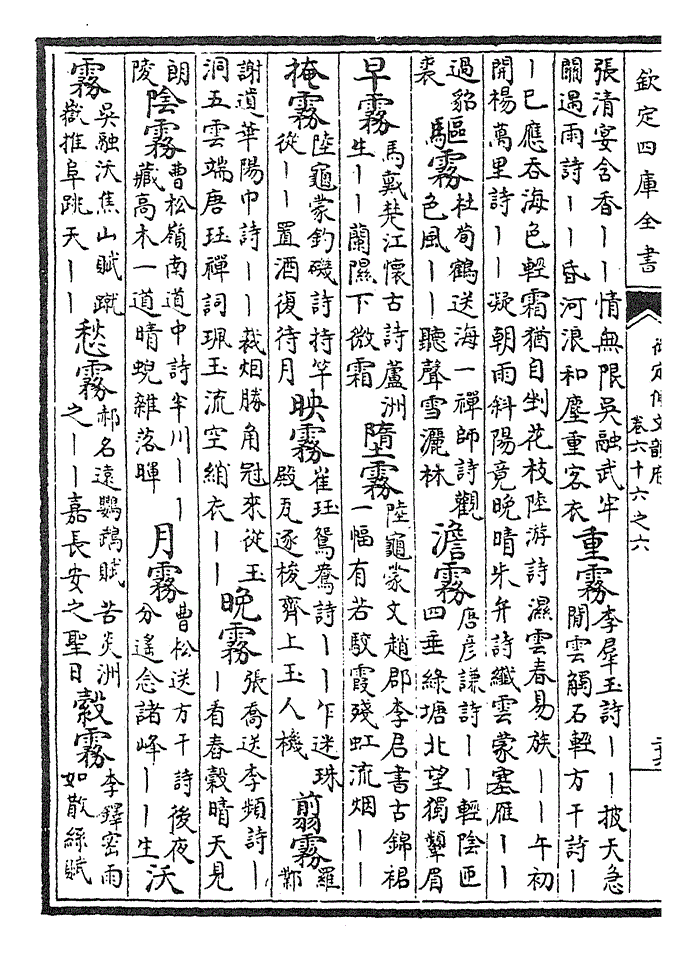 欽定四庫全書
御定佩文韻府
卷六十六之六
張清宴含香丨丨情無限吳融武牢
關遇雨詩丨丨昏河浪和塵重客衣
重霧
李羣玉詩丨丨披天急
閒雲觸石輕方干詩丨
丨巳應吞海色輕霜猶自剉花枝陸游詩濕雲春易族丨丨午初
開楊萬里詩丨丨凝朝雨斜陽竟晚晴朱弁詩纖雲蒙塞雁丨丨
過貂
裘
驅霧
杜荀鶴送海一禪師詩觀
色風丨丨聽聲雪灑林
澹霧
唐彥謙詩丨丨輕陰匝
四垂綠塘北望獨顰眉
早霧
馬戴楚江懷古詩蘆洲
生丨丨蘭隰下微霜
墮霧
陸龜蒙文趙郡李君書古錦裾
一幅有若駮霞殘虹流烟丨丨
掩霧
陸龜蒙釣磯詩持竿
從丨丨置酒復待月
映霧
崔珏鴛鴦詩丨丨乍迷珠
殿瓦逐梭齊上玉人機
翦霧
羅
鄴
謝道華陽巾詩丨丨裁烟勝角冠來從玉
洞五雲端唐珏禪詞珮玉流空綃衣丨丨
晚霧
張喬送李頻詩丨
丨看春縠晴天見
朗
陵
陰霧
曹松嶺南道中詩半川丨丨
藏高木一道晴蜺雜落暉
月霧
曹松送方干詩後夜
分遙念諸峰丨丨生
沃
霧
吳融沃焦山賦蹴
嶽推阜跳天丨丨
愁霧
郝名遠鸚鵡賦苦炎洲
之丨丨嘉長安之聖日
縠霧
李鐸密雨
如散絲賦